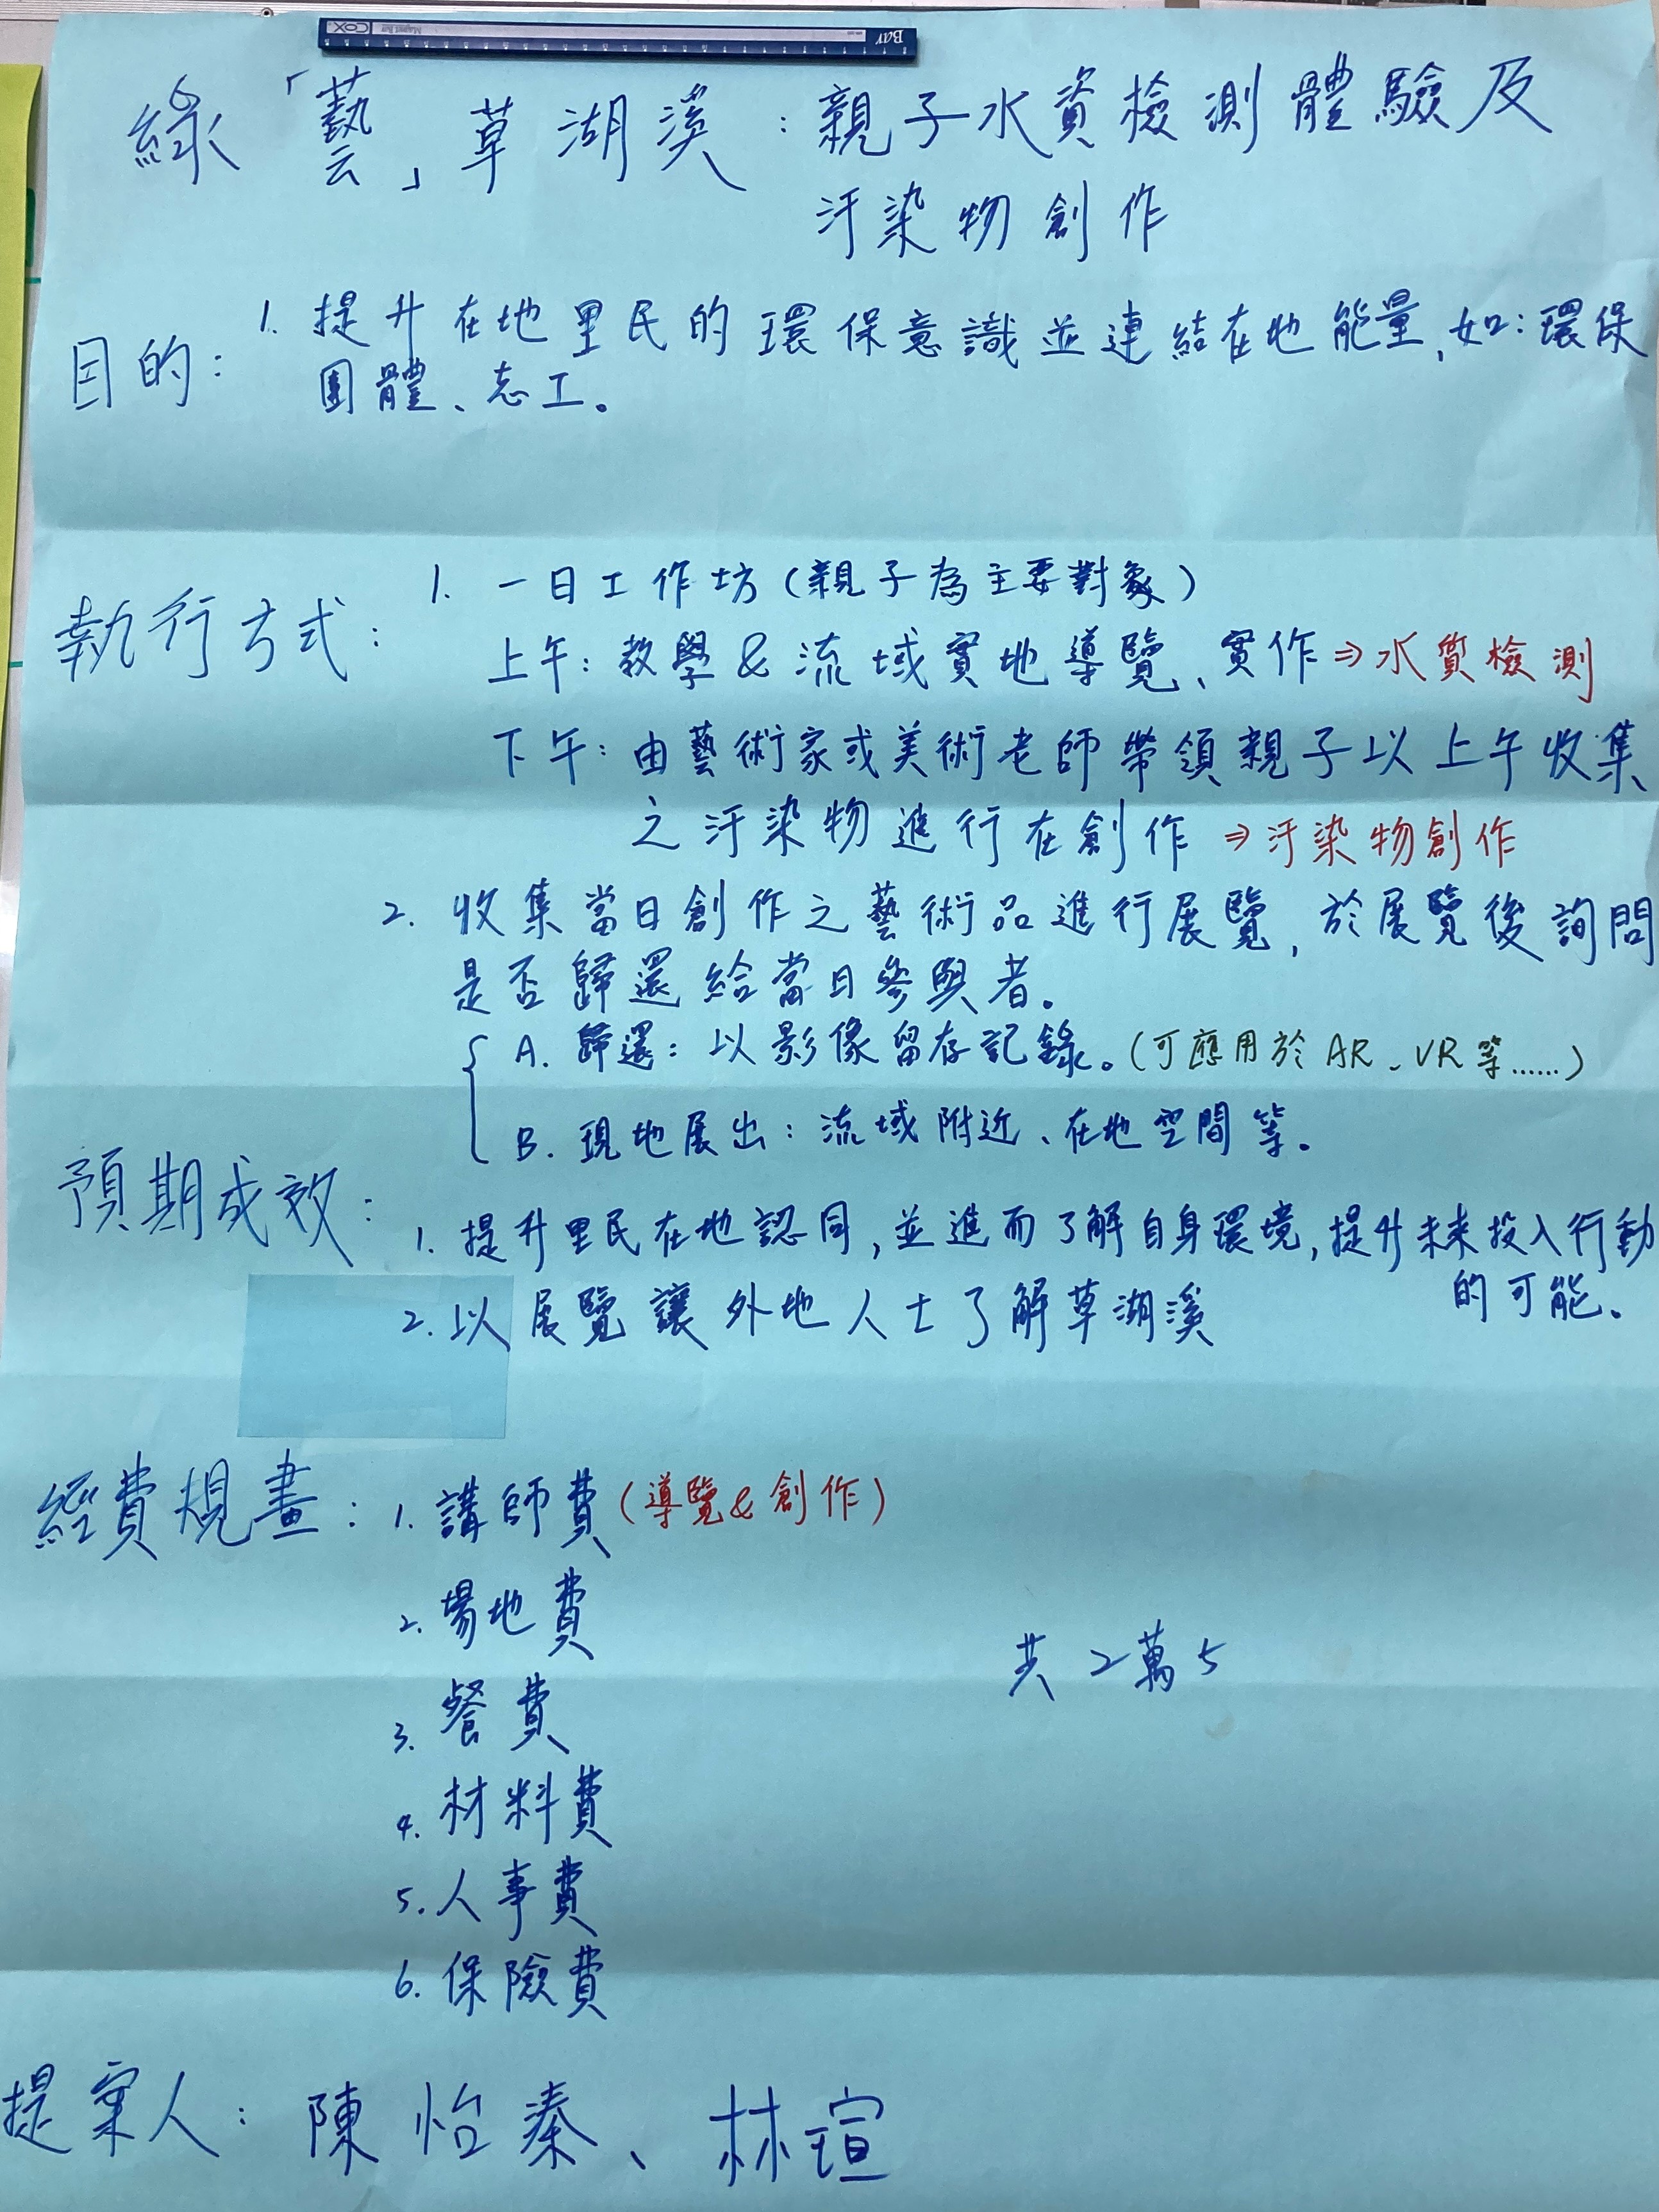 Bay
COX
綠「藝」草湖溪：親子水資檢測體驗及
汙染物創作
目的：
1. 提升在地里民的環保意識並連結在地能量，如：環保
團體、志工。
執行方式：
1. 一日工作坊（親子為主要對象）
上午：教學&流域實地導覽、實作⇒水質檢測
下午：由藝術家或美術老師帶領親子以上午收集
之汙染物進行在創作⇒汙染物創作
2. 收集當日創作之藝術品進行展覽，於展覽後詢問
是否歸還給當日參與者。
A. 歸還：以影像留存記錄。（可應用於AR、VR等……）
B. 現地展出：流域附近、在地空間等。
預期成效：
1. 提升里民在地認同，並進而了解自身環境，提升未來投入行動
的可能。
2. 以展覽讓外地人士了解草湖溪
經費規畫：1. 講師費（導覽&創作）
2. 場地費
共2萬5
3. 餐費
4. 材料費
5. 人事費
6. 保險費
提案人：陳怡秦、林瑄